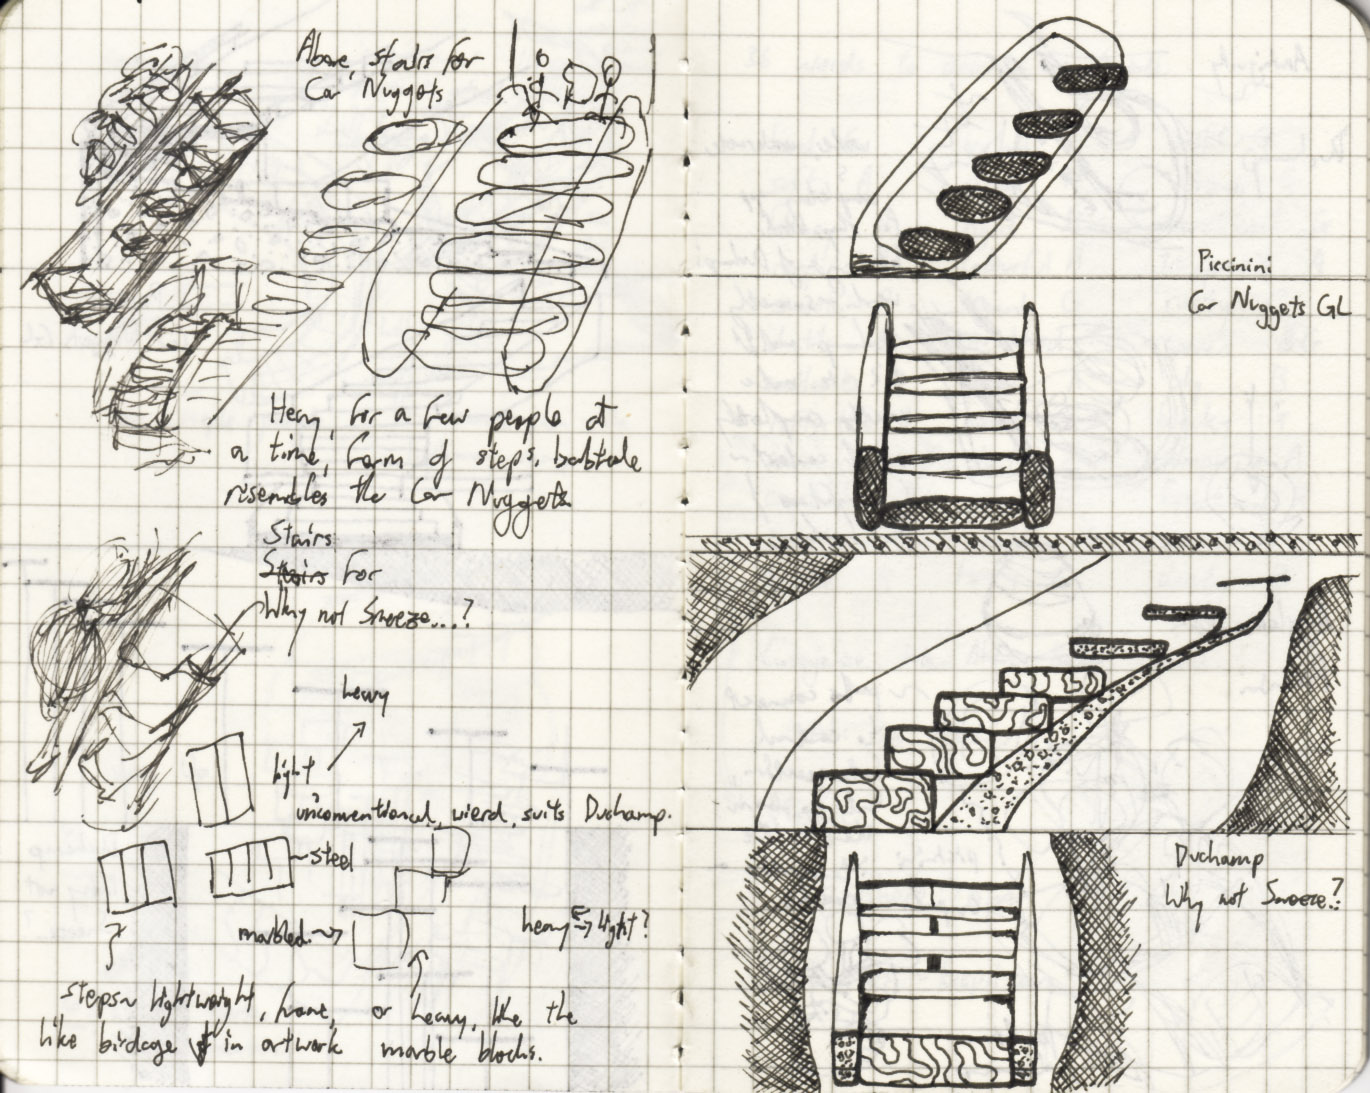 Above, stairs for
Car Nuggets
Heavy, for a few people at
a time, form of steps,
resembles the Car Nuggets
Stairs
Stairs for
Why not Sneeze...?
heavy
light
unconventional, wierd, suits Duchamp.
steel
marbled
heavy light?
steps lightweight, frame, or heavy, like the
like birdcage in artwork marble blocks.
Piccinini
Car Nuggets GL
Duchamp
Why not Sneeze..?